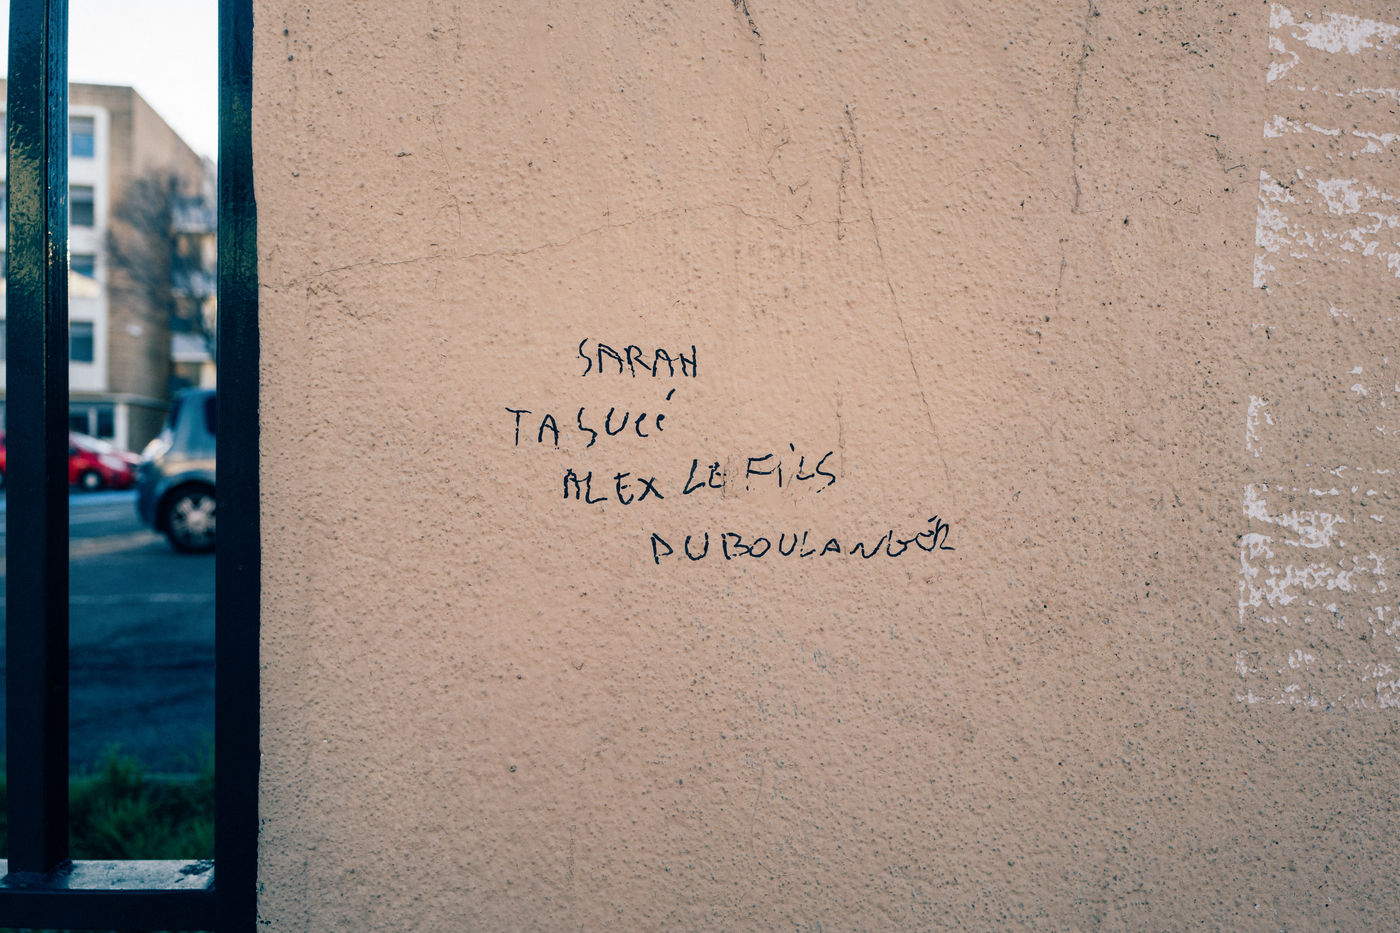 SARAH
TA SUCÉ
ALEX LE FiLS
DU BOULANGÉR